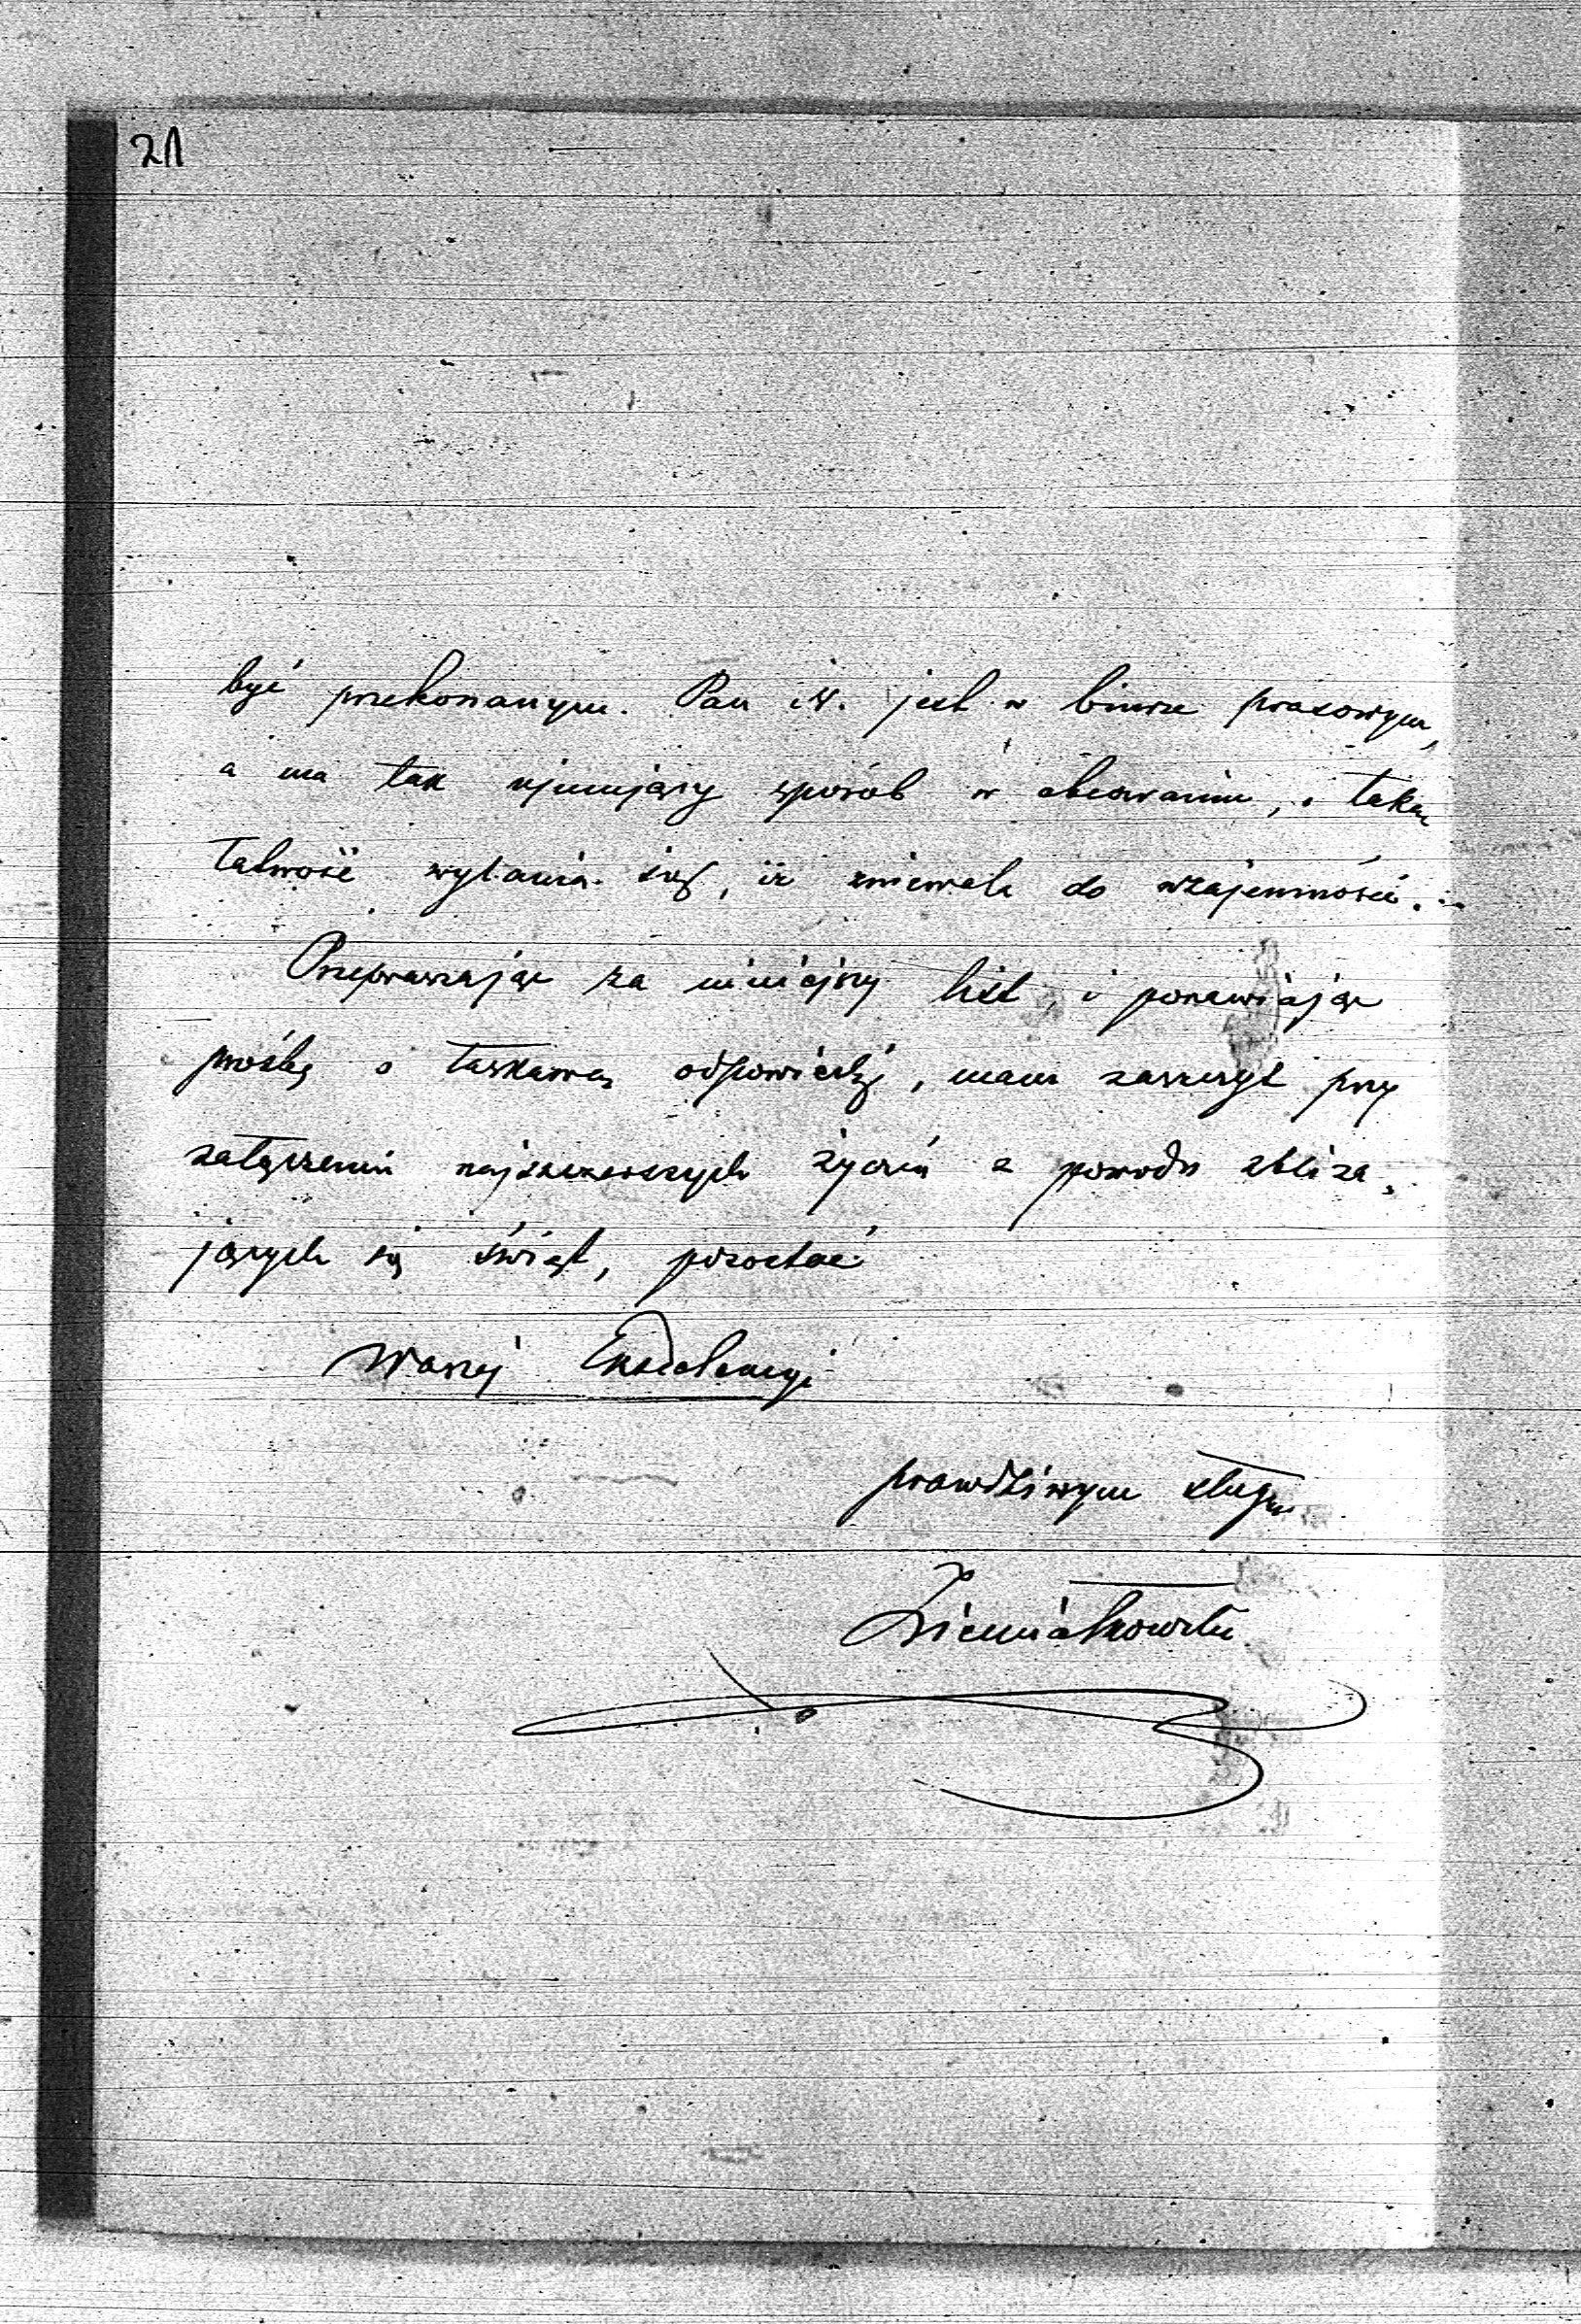 21
być przekonanym. Pan W. jest w biurze prasowym,
a ma tak ujmujący sposób w obcowaniu, i taką
łatwość wyłania się, iż zniewala do wzajemności.
Przepraszając za niniejszy list, i ponawiając
prośbę o łaskawą odpowiedź, mam zaszczyt przy
załączeniu najszczerszych życzeń z powodu zbliża-
jących się świąt, pozostać
Waszej Excelencyi
prawdziwym sługą
Ziemiałkowski